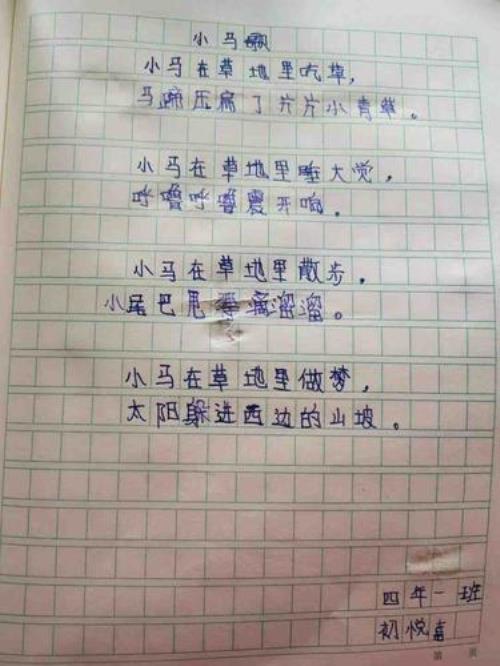 小马歌
小马在草地里吃草，
马蹄压扁了片片小青草。
小马在草地里睡大觉，
呼噜呼噜震天响。
小马在草地里散步，
小尾巴甩得滴溜溜。
小马在草地里做梦，
太阳躲进西边的山坡。
四年一班
初悦喜
第 页